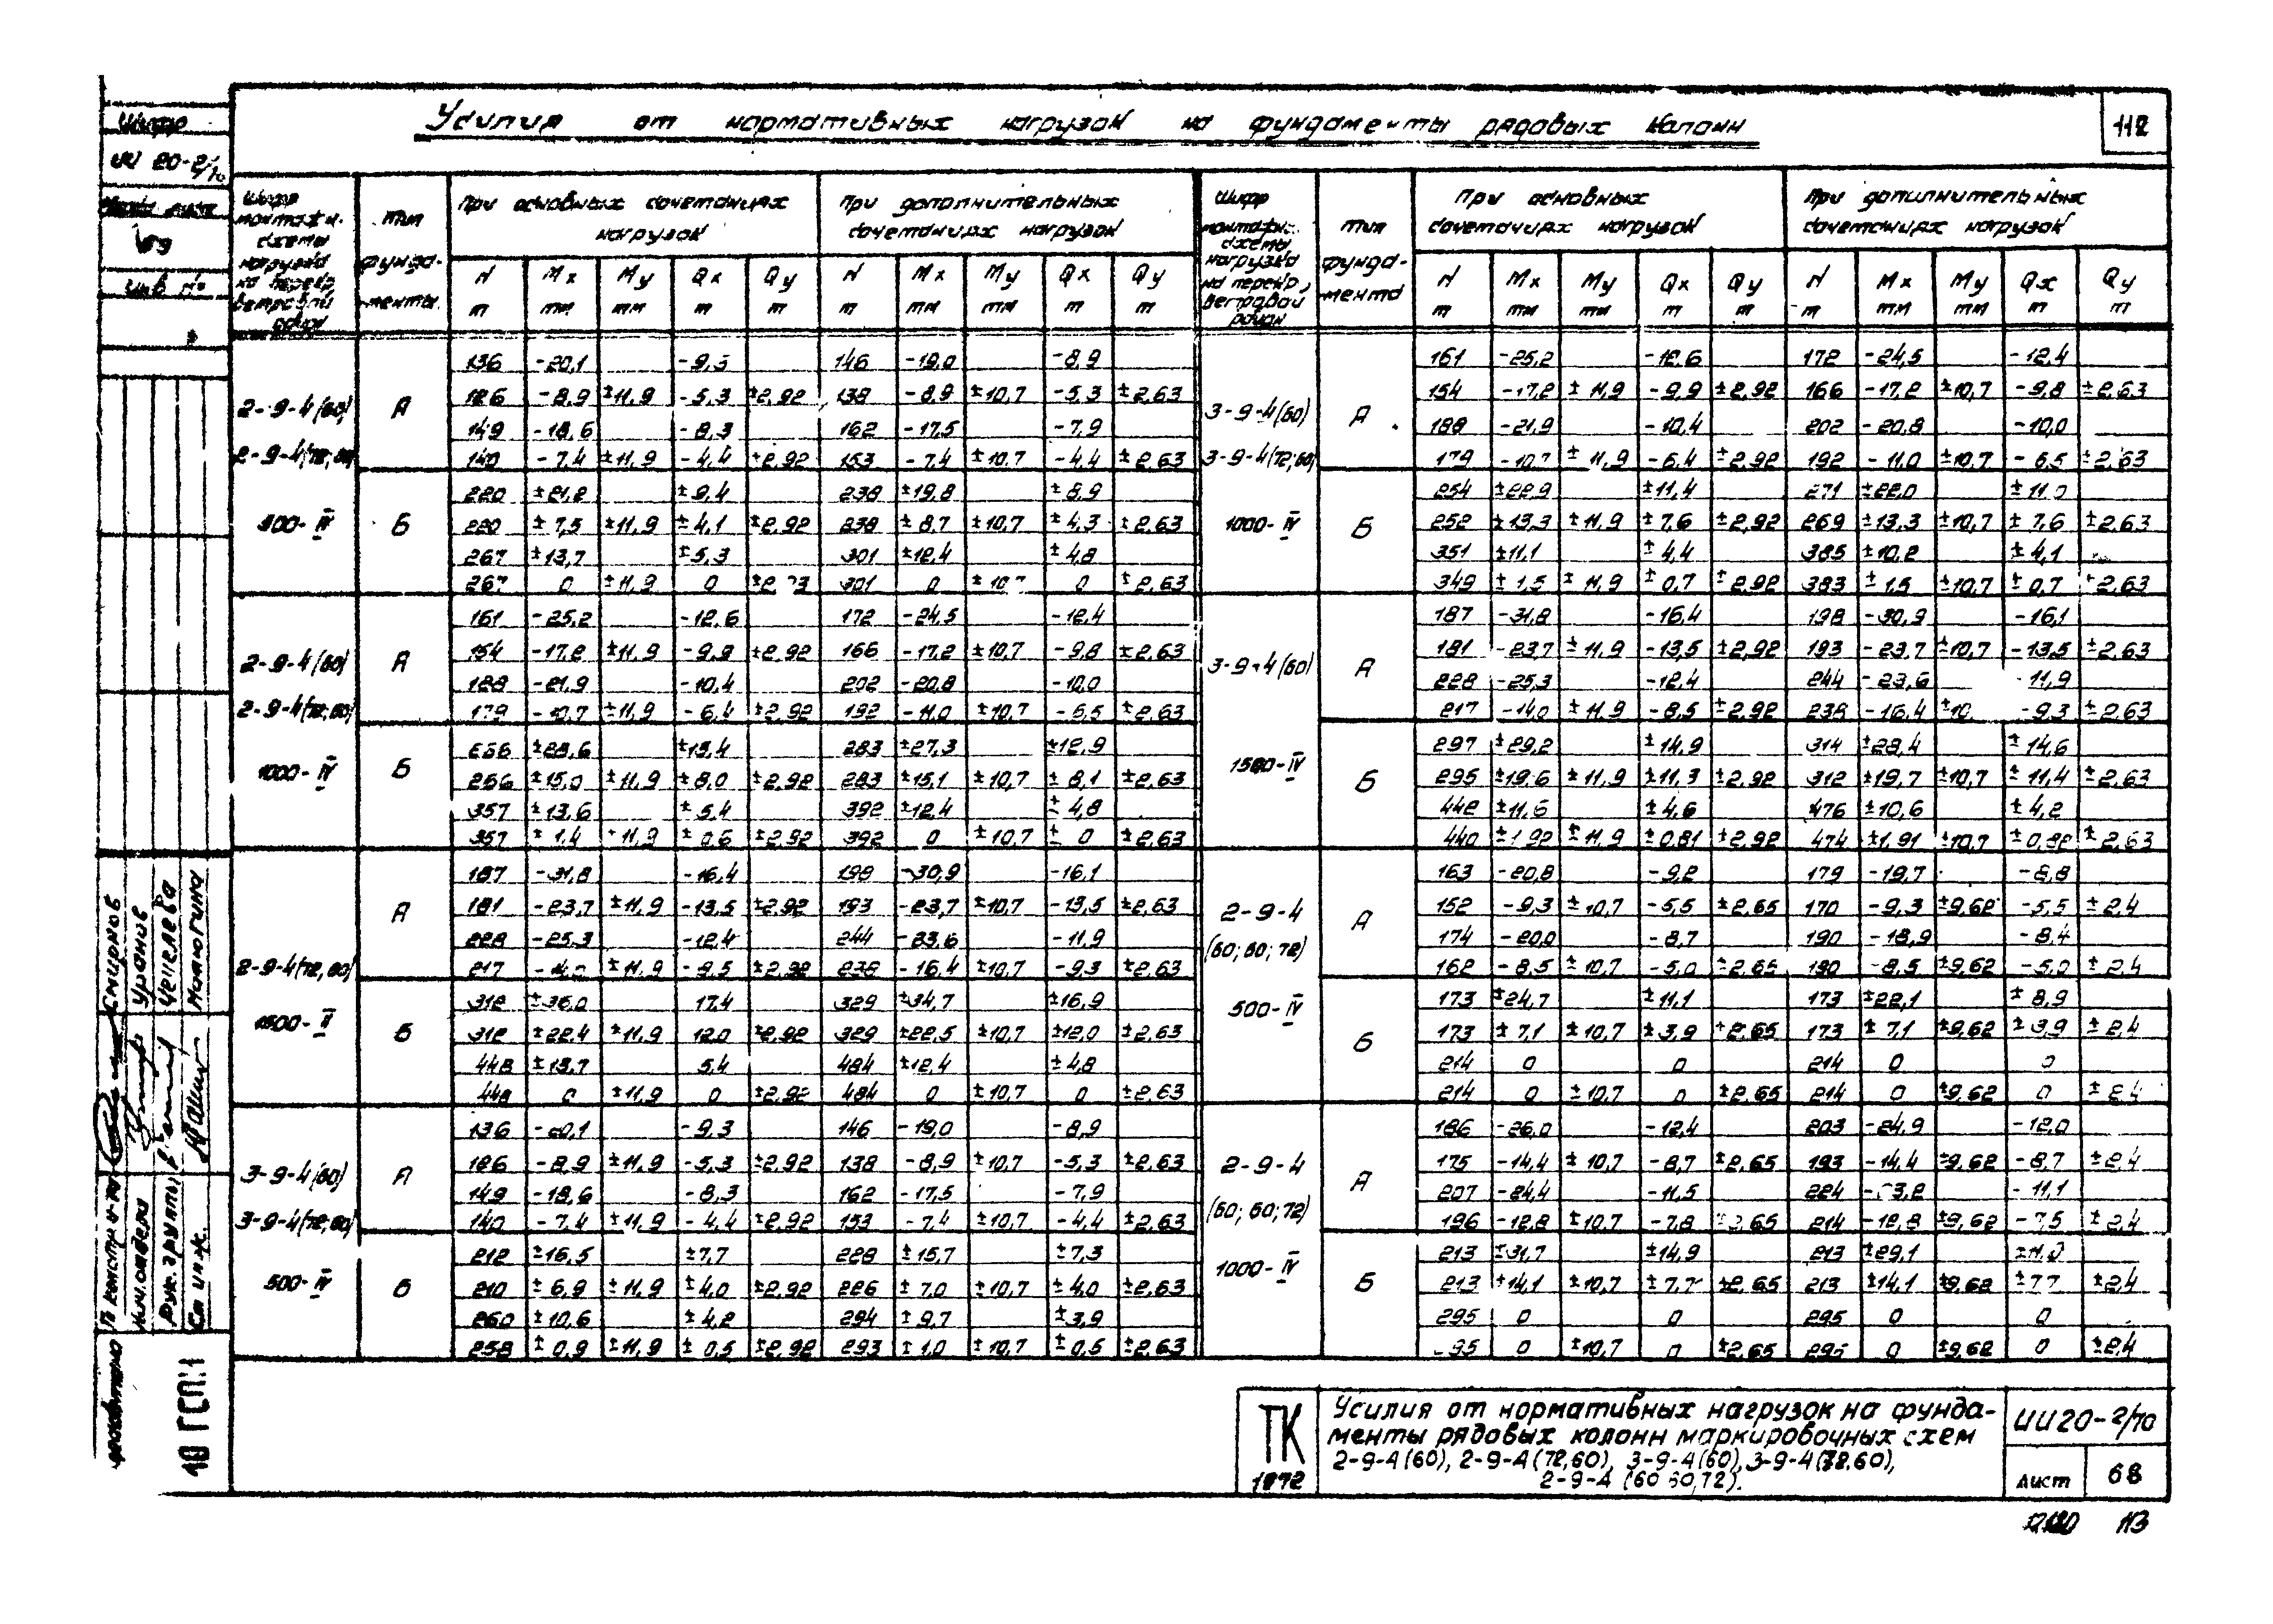 Усилия от нормативных нагрузок на фундаменты рядовых колонн
112
Шифр
ИИ 20-2/70
инв №
Шифр монтажн. схемы нагрузка на перекр. ветровой район
тип фундаменты
При основных сочетаниях нагрузок
При дополнительных сочетаниях нагрузок
Шифр монтажн. схемы нагрузка на перекр, ветровой район
тип фундамента
При основных сочетаниях нагрузок
При дополнительных сочетаниях нагрузок
N Mx My Qx Qy N Mx My Qx Qy
т тм тм т т т тм тм т т
N Mx My Qx Qy N Mx My Qx Qy
т тм тм т т т тм тм т т
2-9-4(60)
2-9-4(72,60)
500-IV
А
136 -20,1 146 -19,0 -8,9
126 -8,9 ±11,9 -5,3 ±2,92 138 -8,9 ±10,7 -5,3 ±2,63
149 -18,6 -8,3 162 -17,5 -7,9
140 -7,4 ±11,9 -4,4 ±2,92 153 -7,4 ±10,7 -4,4 ±2,63
Б
220 ±21,2 ±9,4 238 ±19,8 ±8,9
220 ±7,5 ±11,9 ±4,1 ±2,92 238 ±8,7 ±10,7 ±4,3 ±2,63
267 ±13,7 ±5,3 301 ±12,4 ±4,8
267 0 ±11,9 0 301 0 ±10,7 0 ±2,63
2-9-4(60)
2-9-4(72,60)
1000-IV
А
161 -25,2 -12,6 172 -24,5 -12,4
154 -17,2 ±11,9 -9,9 ±2,92 166 -17,2 ±10,7 -9,8 ±2,63
188 -21,9 -10,4 202 -20,8 -10,0
179 -10,7 ±11,9 -6,4 ±2,92 192 -11,0 ±10,7 -6,5 ±2,63
Б
±28,6 ±13,4 283 ±27,3 ±12,9
266 ±15,0 ±11,9 ±8,0 ±2,92 283 ±15,1 ±10,7 ±8,1 ±2,63
357 ±13,6 ±5,4 392 ±12,4 ±4,8
357 ±1,4 ±11,9 ±0,6 ±2,92 392 0 ±10,7 ± 0 ±2,63
2-9-4(72,60)
1500-IV
А
187 -31,8 -16,4 198 -30,9 -16,1
181 -23,7 ±11,9 -13,5 ±2,92 193 -23,7 ±10,7 -13,5 ±2,63
228 -25,3 -12,4 244 -23,6 -11,9
217 -14,0 ±11,9 -9,5 ±2,92 238 -16,4 ±10,7 -9,3 ±2,63
Б
312 ±36,0 17,4 329 ±34,7 ±16,9
312 ±22,4 ±11,9 12,0 ±2,92 329 ±22,5 ±10,7 ±12,0 ±2,63
448 ±13,7 5,4 484 ±12,4 ±4,8
448 0 ±11,9 0 ±2,92 484 0 ±10,7 0 ±2,63
3-9-4(60)
3-9-4(72,60)
500-IV
А
136 -20,1 -9,3 146 -19,0 -8,9
126 -8,9 ±11,9 -5,3 ±2,92 138 -8,9 ±10,7 -5,3 ±2,63
149 -18,6 -8,3 162 -17,5 -7,9
140 -7,4 ±11,9 -4,4 ±2,92 153 -7,4 ±10,7 -4,4 ±2,63
Б
212 ±16,5 ±7,7 228 ±15,7 ±7,3
210 ±6,9 ±11,9 ±4,0 ±2,92 226 ±7,0 ±10,7 ±4,0 ±2,63
260 ±10,6 ±4,2 294 ±9,7 ±3,9
258 ±0,9 ±11,9 ±0,5 ±2,92 293 ±1,0 ±10,7 ±0,5 ±2,63
3-9-4(60)
3-9-4(72,60)
1000-IV
А
161 -25,2 -12,6 172 -24,5 -12,4
154 -17,2 ±11,9 -9,9 ±2,92 166 -17,2 ±10,7 -9,8 ±2,63
188 -21,9 -10,4 202 -20,8 -10,0
179 -10,7 ±11,9 -6,4 ±2,92 192 -11,0 ±10,7 -6,5 ±2,63
Б
254 ±22,9 ±11,4 271 ±22,0 ±11,0
252 ±13,3 ±11,9 ±7,6 ±2,92 269 ±13,3 ±10,7 ±7,6 ±2,63
351 ±11,1 ±4,4 385 ±10,2 ±4,1
349 ±1,5 ±11,9 ±0,7 ±2,92 383 ±1,5 ±10,7 ±0,7 ±2,63
3-9-4(60)
1500-IV
А
187 -31,8 -16,4 198 -30,9 -16,1
181 -23,7 ±11,9 -13,5 ±2,92 193 -23,7 ±10,7 -13,5 ±2,63
228 -25,3 -12,4 244 -23,6 11,9
217 -14,0 ±11,9 -8,5 ±2,92 238 -16,4 ±10, -9,3 ±2,63
Б
297 ±29,2 ±14,9 314 ±28,4 ±14,6
295 ±19,6 ±11,9 ±11,3 ±2,92 312 ±19,7 ±10,7 ±11,4 ±2,63
442 ±11,6 ±4,6 476 ±10,6 ±4,2
440 ±1,92 ±11,9 ±0,81 ±2,92 474 ±1,91 ±10,7 ±2,63
2-9-4
(60;60;72)
500-IV
А
163 -20,8 -9,2 179 -19,7 -8,8
152 -9,3 ±10,7 -5,5 ±2,65 170 -9,3 ±9,62 -5,5 ±2,4
174 -20,0 -8,7 190 -18,9 -8,4
162 -8,5 ±10,7 -5,0 ±2,65 180 -8,5 ±9,62 -5,0 ±2,4
Б
173 ±24,7 ±11,1 173 ±22,1 ±8,9
173 ±7,1 ±10,7 ±3,9 ±2,65 173 ±7,1 ±9,62 ±3,9 ±2,4
214 0 0 214 0 0
214 0 ±10,7 0 ±2,65 214 0 ±9,62 0 ±2,4
2-9-4
(60;60;72)
1000-IV
А
186 -26,0 -12,4 203 -24,9 -12,0
175 -14,4 ±10,7 -8,7 ±2,65 193 -14,4 ±9,62 -8,7 ±2,4
207 -24,4 -11,5 224 -11,1
196 -12,8 ±10,7 -7,8 ±2,65 214 -12,8 ±9,62 -7,5 ±2,4
Б
213 ±31,7 ±14,9 213 ±29,1 ±11,0
213 ±14,1 ±10,7 ±7,7 ±2,65 213 ±14,1 ±9,62 ±7,7 ±2,4
295 0 0 295 0 0
0 ±10,7 0 ±2,65 295 0 ±9,62 0 ±2,4
Смирнов
Уранов
Чепелева
Манюгина
Нач.отдела
Рук. группы
Ст инж.
10 ГСПИ
ТК
1972
Усилия от нормативных нагрузок на фунда-
менты рядовых колонн маркировочных схем
2-9-4(60), 2-9-4(72,60), 3-9-4(60), 3-9-4(72,60),
2-9-4 (60 60,72).
ИИ20-2/70
лист 68
113